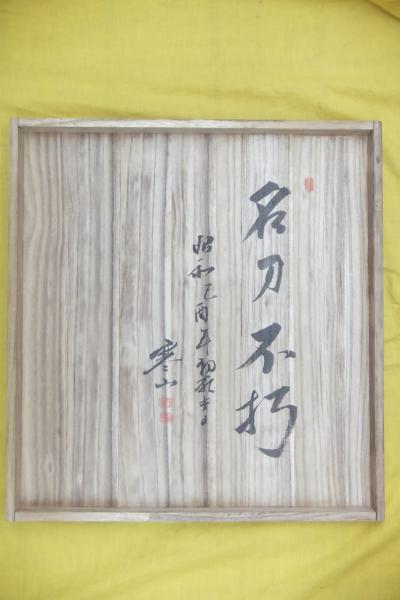 名刀不朽
昭和己酉年初秋吉日
寒山